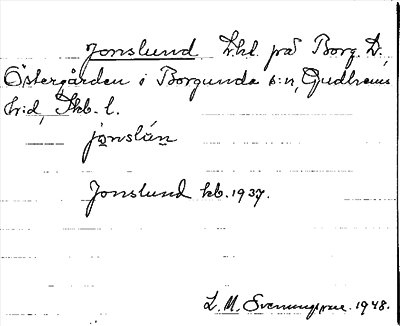 Jonslund t.hl. på Borg. D.
Östergården i Borgunda s:n, Gudhems
h:d, Skb. l.
jonslún
Jonslund kb. 1937.
L. M. Svenungsson. 1948.